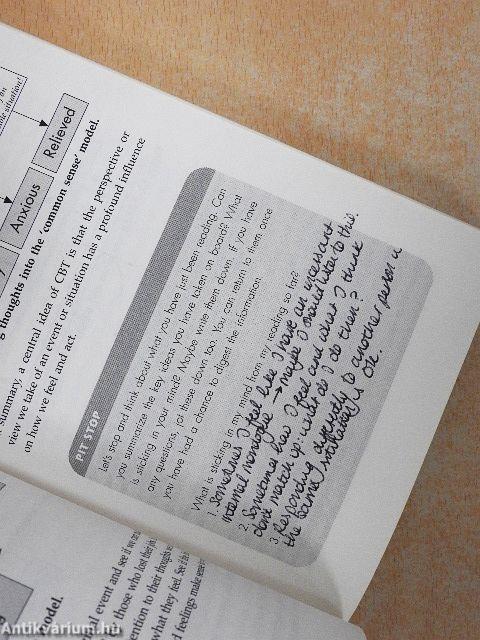 y on
ne situation!
Anxious
Relieved
g thoughts into the 'common sense' model.
summary, a central idea of CBT is that the perspective or
view we take of an event or situation has a profound influence
on how we feel and act.
PIT STOP
Let's stop and think about what you have just been reading. Can
you summarize the key ideas you have taken on board? What
is sticking in your mind? Maybe write them down. If you have
any questions, jot these down too. You can return to them once
you have had a chance to digest the information.
What is sticking in my mind from my reading so far?
1. Sometimes I feel like I have an incessant
internal monologue → maybe I should listen to this.
2. Sometimes how I feel and what I think
dont match up: what do I do then?
3. Responding differently to another person in
the same situation is OK.
odel.
al event and see if we
those who lost their
ention to their thoughts
what they feel. See if
d feelings make sense
Antikvarium.hu